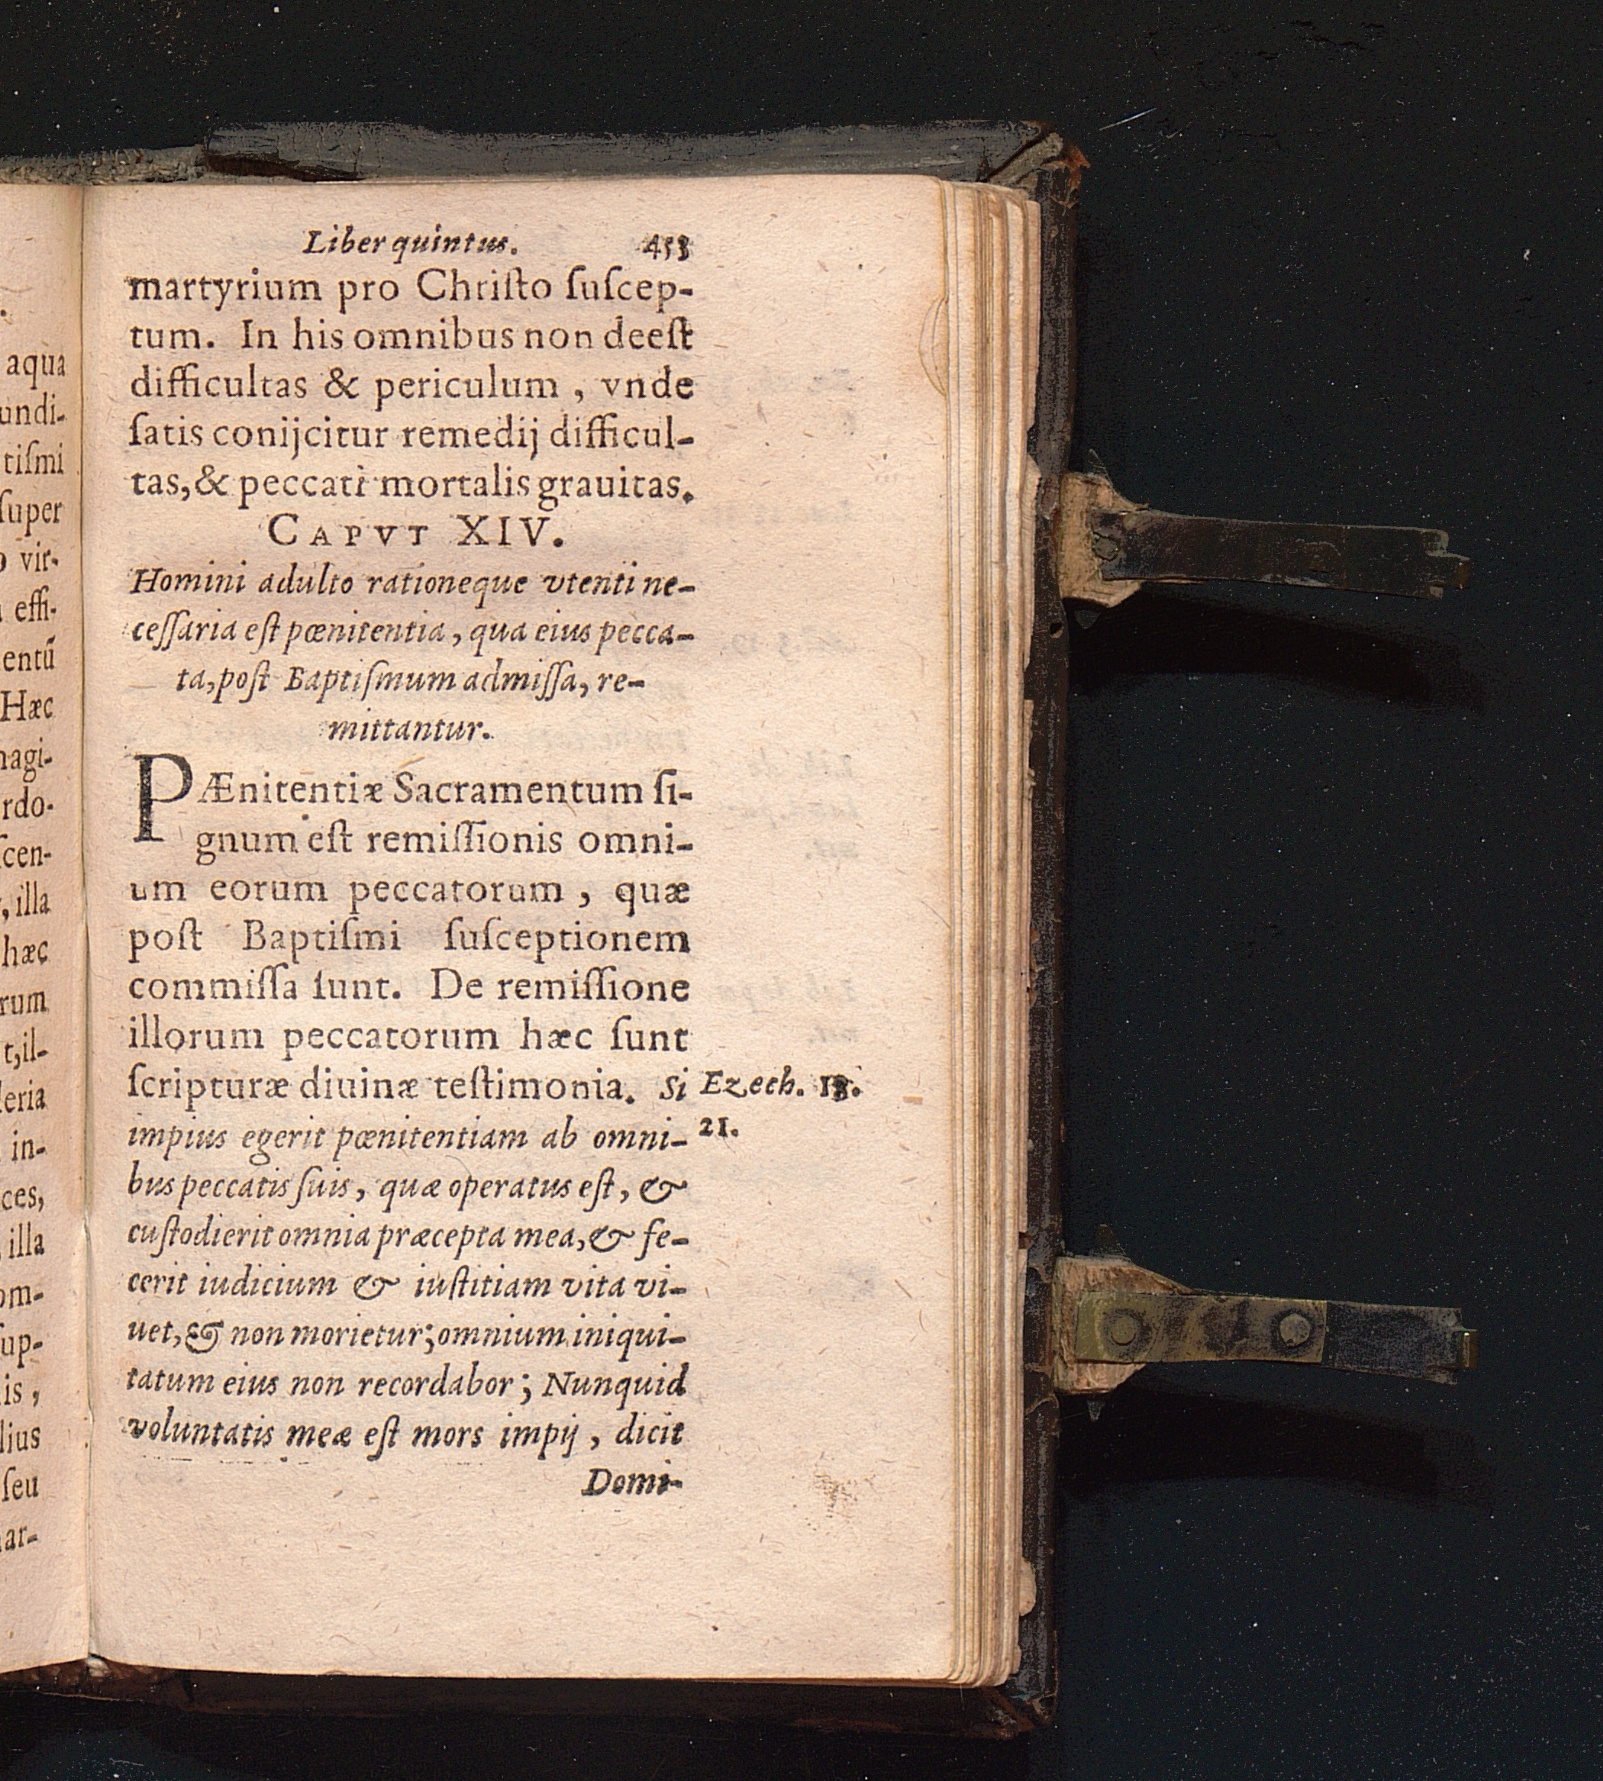 Liber quintus. 453
martyrium pro Chriſto ſuſcep-
tum. In his omnibus non deeſt
difficultas & periculum, vnde
ſatis conijcitur remedij difficul-
tas, & peccati mortalis grauitas.
CAPVT XIV.
Homini adulto rationeque vtenti ne-
ceſſaria eſt pœnitentia, qua eius pecca-
ta, poſt Baptiſmum admiſſa, re-
mittantur.
PÆnitentiæ Sacramentum ſi-
gnum eſt remiſſionis omni-
um eorum peccatorum, quæ
poſt Baptiſmi ſuſceptionem
commiſſa ſunt. De remiſſione
illorum peccatorum hæc ſunt
ſcripturæ diuinæ teſtimonia. Si
impius egerit pœnitentiam ab omni-
bus peccatis ſuis, quæ operatus eſt, &
cuſtodierit omnia præcepta mea, & fe-
cerit iudicium & iuſtitiam vita vi-
uet, & non morietur; omnium iniqui-
tatum eius non recordabor; Nunquid
voluntatis meæ eſt mors impij, dicit
Domi-
Ezech. 18.
21.
aqua
undi-
tiſmi
ſuper
vir-
effi-
entũ
Hæc
nagi-
rdo-
ſcen-
, illa
hæc
rum
t, il-
leria
in-
ces,
illa
om-
ſup-
is,
lius
ſeu
ar-